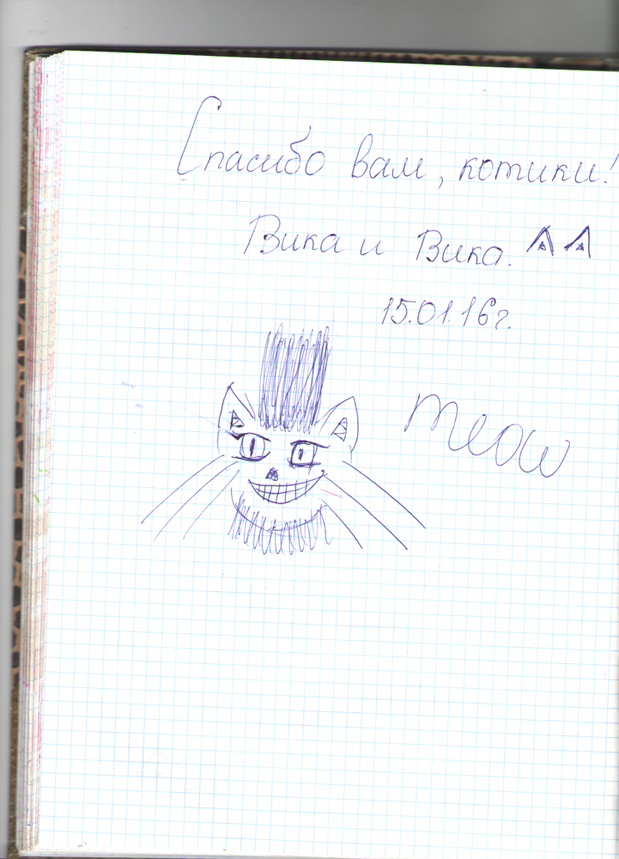 Спасибо вам, котики!
Вика и Вика.
15.01.16г.
meow